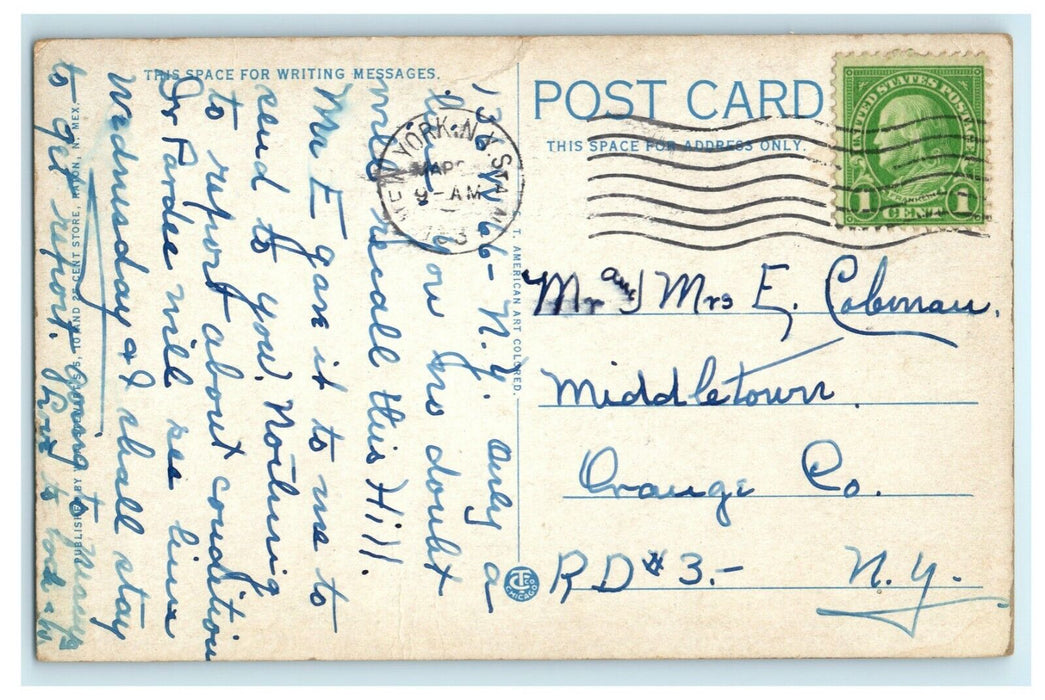 THIS SPACE FOR WRITING MESSAGES.
136 W 66 - N.Y. Only a
line. You no doubt
will recall this Hill.
Mr E gave it to me to
send to you. Nothing
to report about condition
Dr Pardee will see
Wednusday & I shall stay
to get report. going to
PUBLISHED BY 5, 10 AND 25 CENT STORE, RATON, N. MEX.
C. T. AMERICAN ART COLORED.
C.T. CO. CHICAGO
POST CARD
THIS SPACE FOR ADDRESS ONLY.
NEW YORK, N.Y. STA.
9 - AM
UNITED STATES POSTAGE
FRANKLIN
1 CENT 1
Mr and Mrs E. Cobman.
Middletown.
Orange Co.
RD #3.- N.Y.